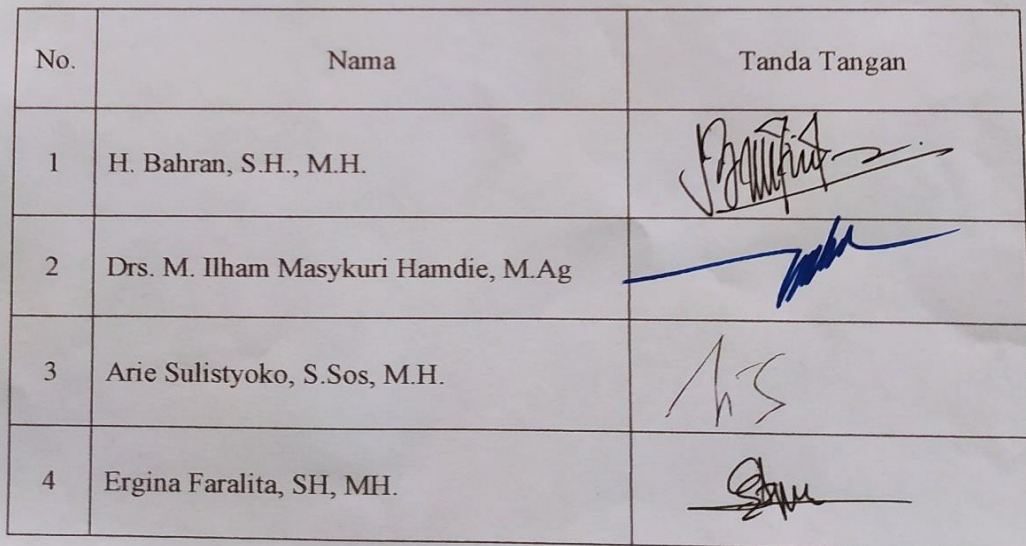 No. Nama Tanda Tangan
1 H. Bahran, S.H., M.H.
2 Drs. M. Ilham Masykuri Hamdie, M.Ag
3 Arie Sulistyoko, S.Sos, M.H.
4 Ergina Faralita, SH, MH.